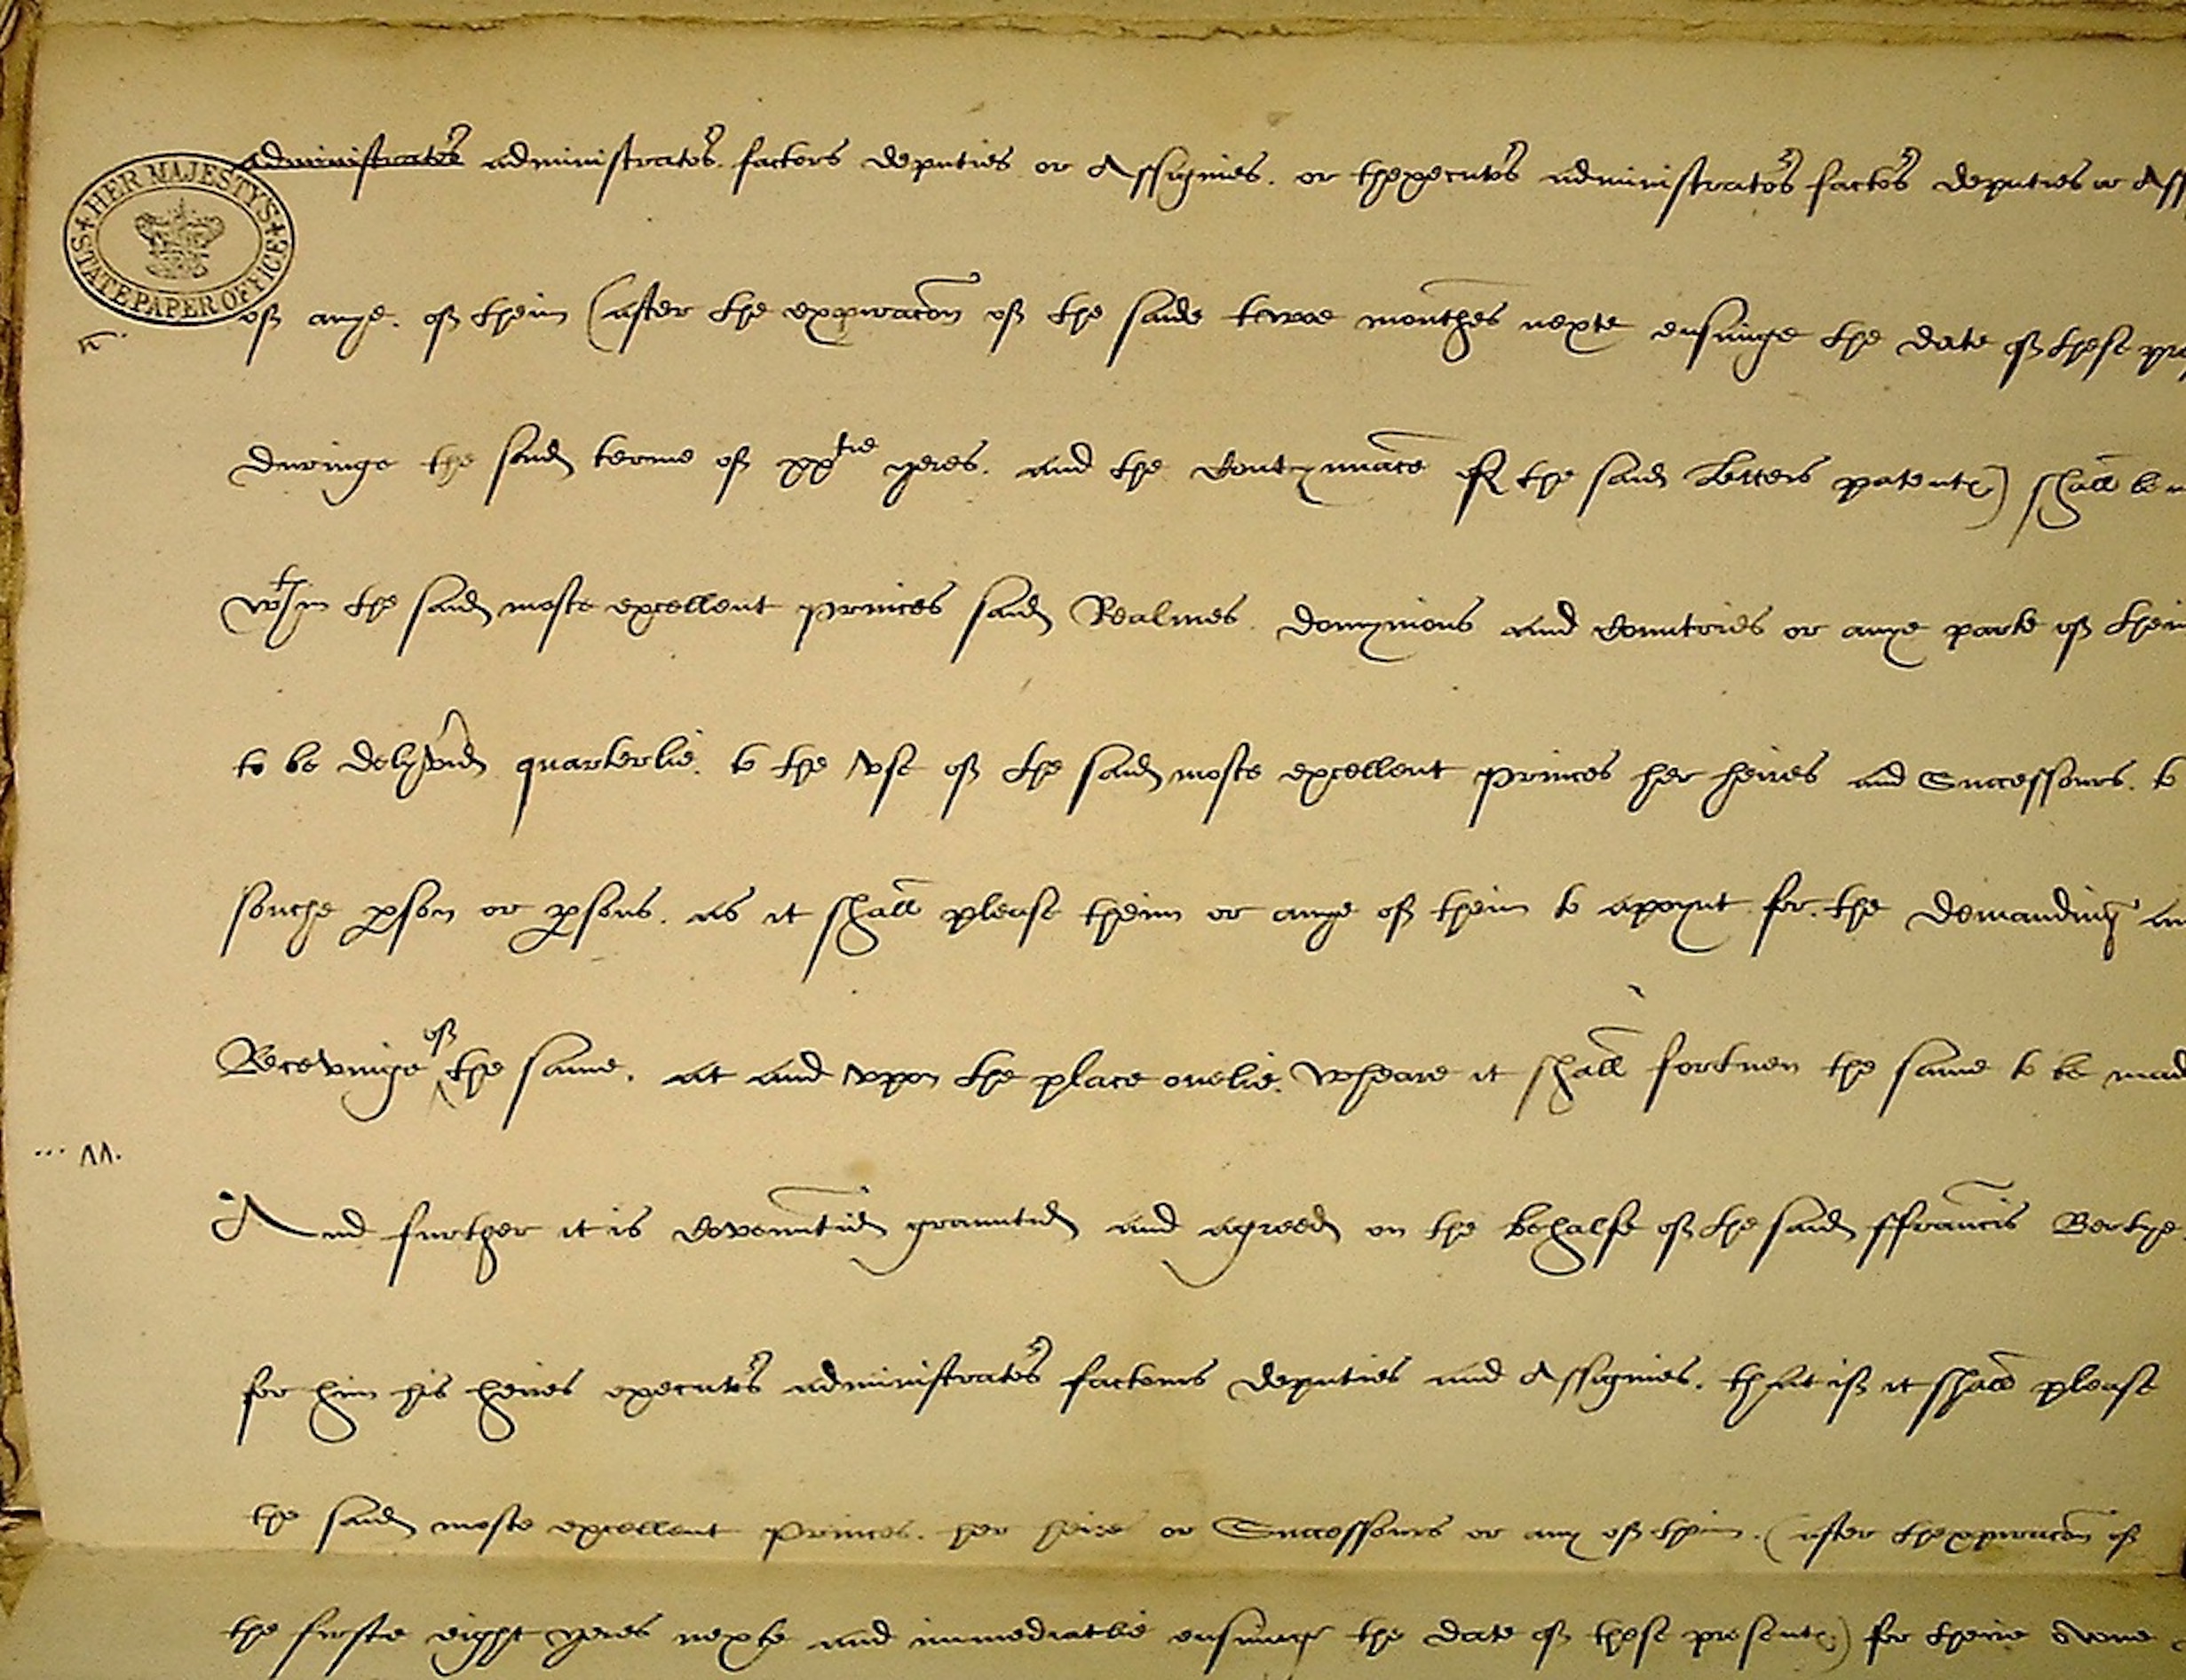 HER MAJESTY'S STATE PAPER OFFICE
administrato^rs administrato^rs. factors deputies or Assignies. or thexecuto^rs administrato^rs facto^rs deputies or Ass
of anye. of theim (after the expiracōn of the saide twoe monthes nexte ensuinge the date of these pre
duringe the said terme of xx^tie yeres. and the contynuāce of the said Letters patent) shall be
w^tin the said moste excellent princes said Realmes. domynions and countries or anye parte of theim
to be delyv^rid quarterlie. to the vse of the said moste excellent princes her heires and Successours. to
souche pson or psons. as it shall please theim or anye of theim to apoynt for. the demanding an
Recevinge ^of the same. at and vppon the place onelie. wheare it shall fortuen the same to be mad
And further it is covenntid grauntid and agreed on the behalfe of the said ffrancis Bertye.
for him his heires executo^rs administrato^rs factours deputies and Assignies. that if it shall please
the said moste excellent Princes. her heires or Successours or any of theim. (after thexpiracōn of
the firste eight yeres nexte and immediatlie ensuinge the date of these present) for theire owne